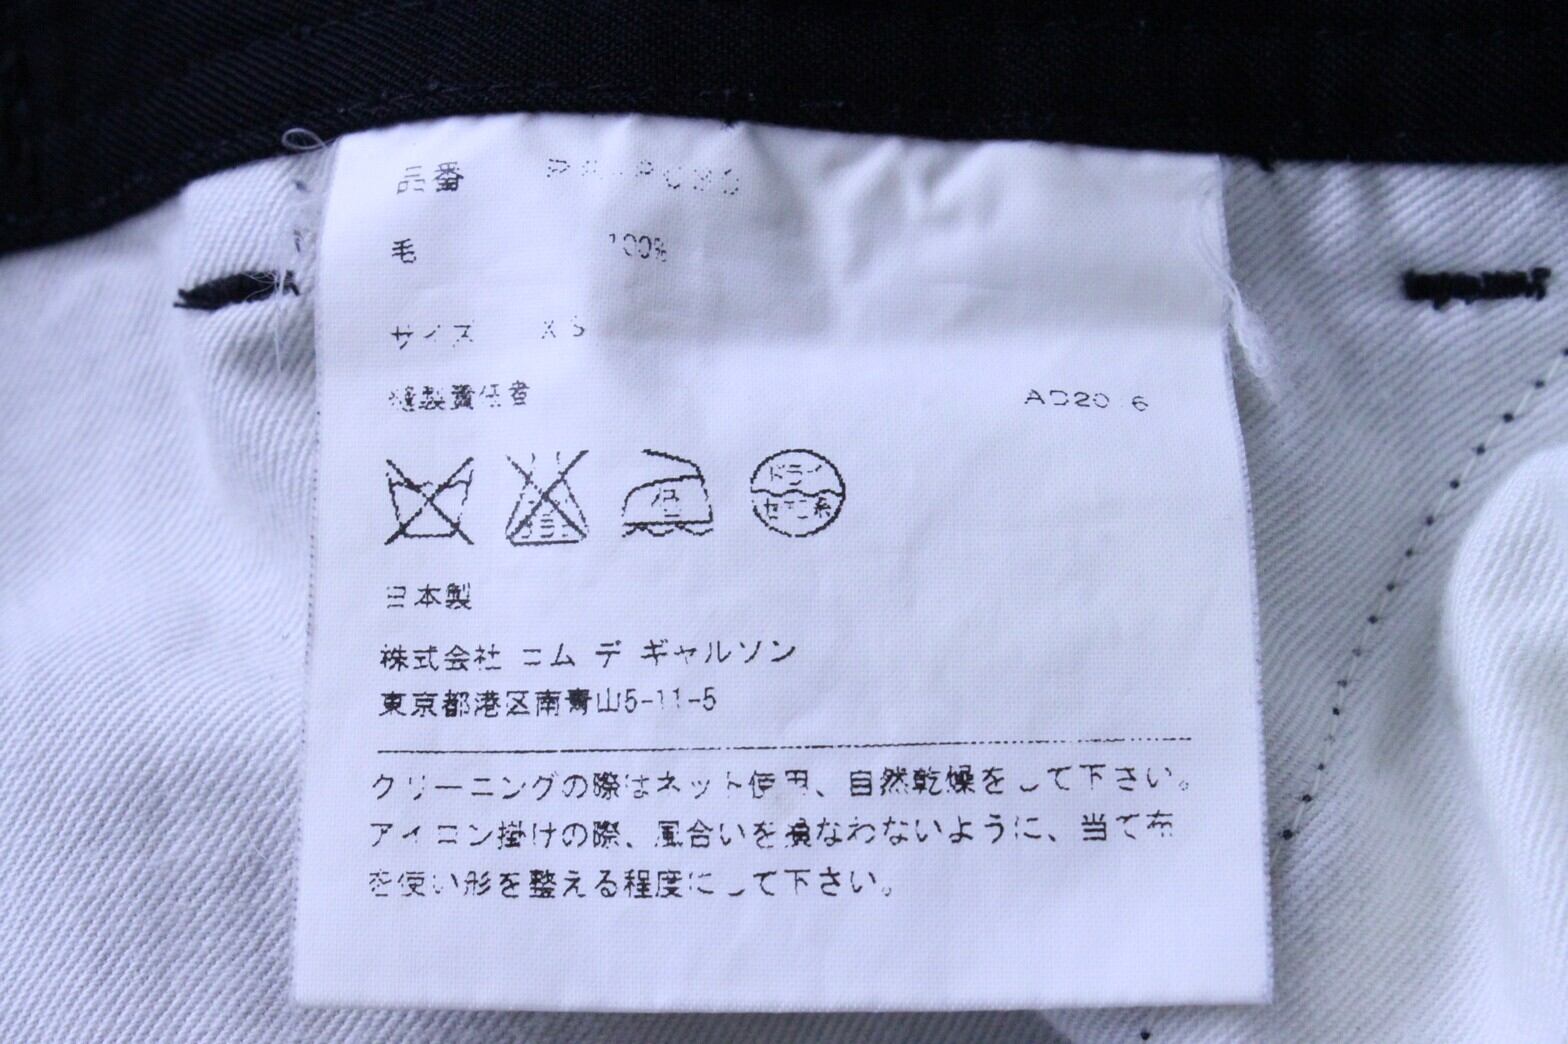 品番
毛 100%
サイズ XS
縫製責任者 AD20 6
中
ドライ
セキユ系
日本製
株式会社 コム デ ギャルソン
東京都港区南青山5-11-5
クリーニングの際はネット使用、自然乾燥をして下さい。
アイロン掛けの際、風合いを損なわないように、当て布
を使い形を整える程度にして下さい。